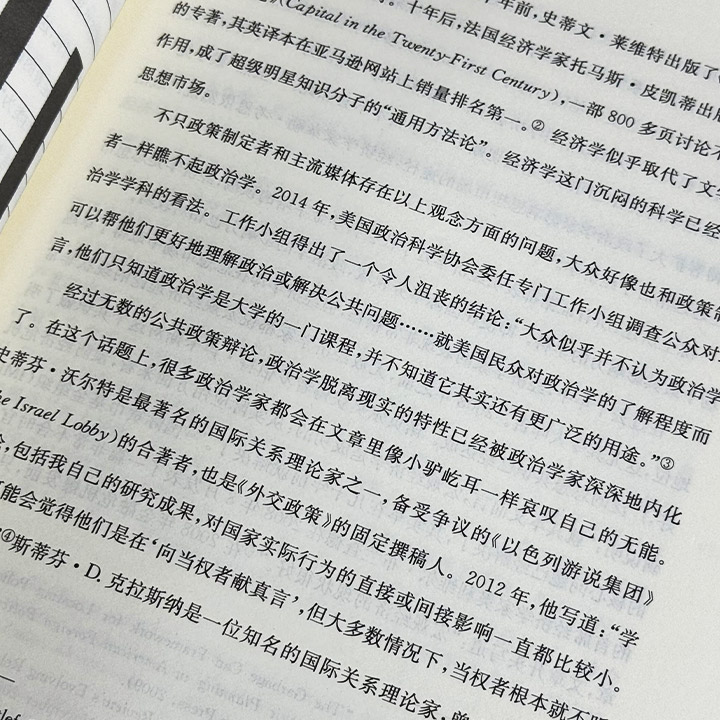 年前，史蒂文·莱维特出版了
十年后，法国经济学家托马斯·皮凯蒂出版
(Capital in the Twenty-First Century)，一部 800 多页讨论不
的专著，其英译本在亚马逊网站上销量排名第一。② 经济学似乎取代了文
作用，成了超级明星知识分子的“通用方法论”。经济学这门沉闷的科学已经
思想市场。
不只政策制定者和主流媒体存在以上观念方面的问题，大众好像也和政策制
者一样瞧不起政治学。2014 年，美国政治科学协会委任专门工作小组调查公众对
治学学科的看法。工作小组得出了一个令人沮丧的结论：“大众似乎并不认为政治学
可以帮他们更好地理解政治或解决公共问题……就美国民众对政治学的了解程度而
言，他们只知道政治学是大学的一门课程，并不知道它其实还有更广泛的用途。”③
经过无数的公共政策辩论，政治学脱离现实的特性已经被政治学家深深地内化
了。在这个话题上，很多政治学家都会在文章里像小驴屹耳一样哀叹自己的无能。
史蒂芬·沃尔特是最著名的国际关系理论家之一，备受争议的《以色列游说集团》
he Israel Lobby)的合著者，也是《外交政策》的固定撰稿人。2012 年，他写道：“学
，包括我自己的研究成果，对国家实际行为的直接或间接影响一直都比较小。
能会觉得他们是在‘向当权者献真言’，但大多数情况下，当权者根本就不
④斯蒂芬·D. 克拉斯纳是一位知名的国际关系理论家，